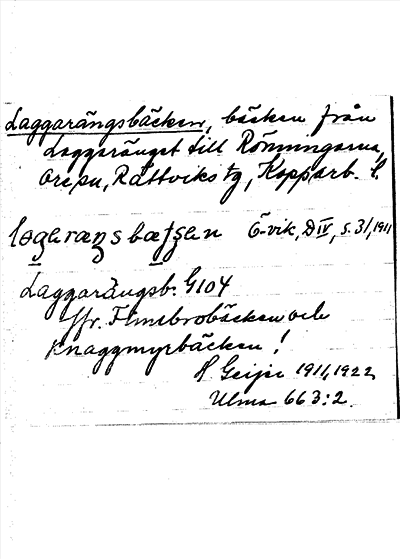 Laggarängsbäcken, bäcken från
Laggaränget till Rönningarna,
Ore sn, Rättviks tg, Kopparb. l.
E-vik, D IV, s. 31, 1911
Laggarängsb. G104
Jfr. Finnbrobäcken och
Knaggmyrbäcken!
H Geijer 1911, 1922
Ulma 663:2.